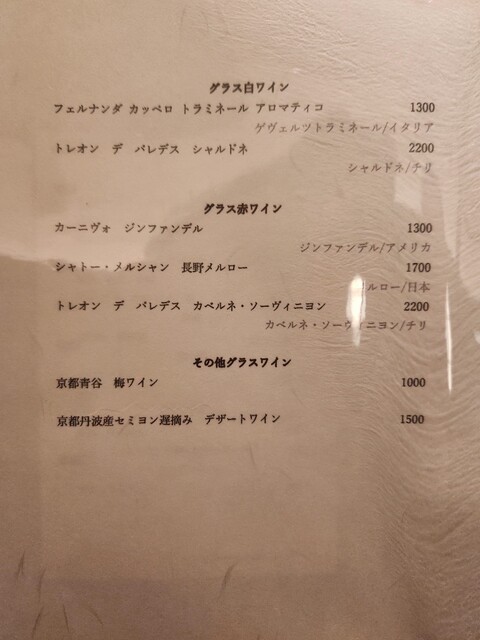 グラス白ワイン
フェルナンダ カッペロ トラミネール アロマティコ 1300
ゲヴェルツトラミネール/イタリア
トレオン デ パレデス シャルドネ 2200
シャルドネ/チリ
グラス赤ワイン
カーニヴォ ジンファンデル 1300
ジンファンデル/アメリカ
シャトー・メルシャン 長野メルロー 1700
ルロー/日本
トレオン デ パレデス カベルネ・ソーヴィニヨン 2200
カベルネ・ソーヴィニヨン/チリ
その他グラスワイン
京都青谷 梅ワイン 1000
京都丹波産セミヨン遅摘み デザートワイン 1500